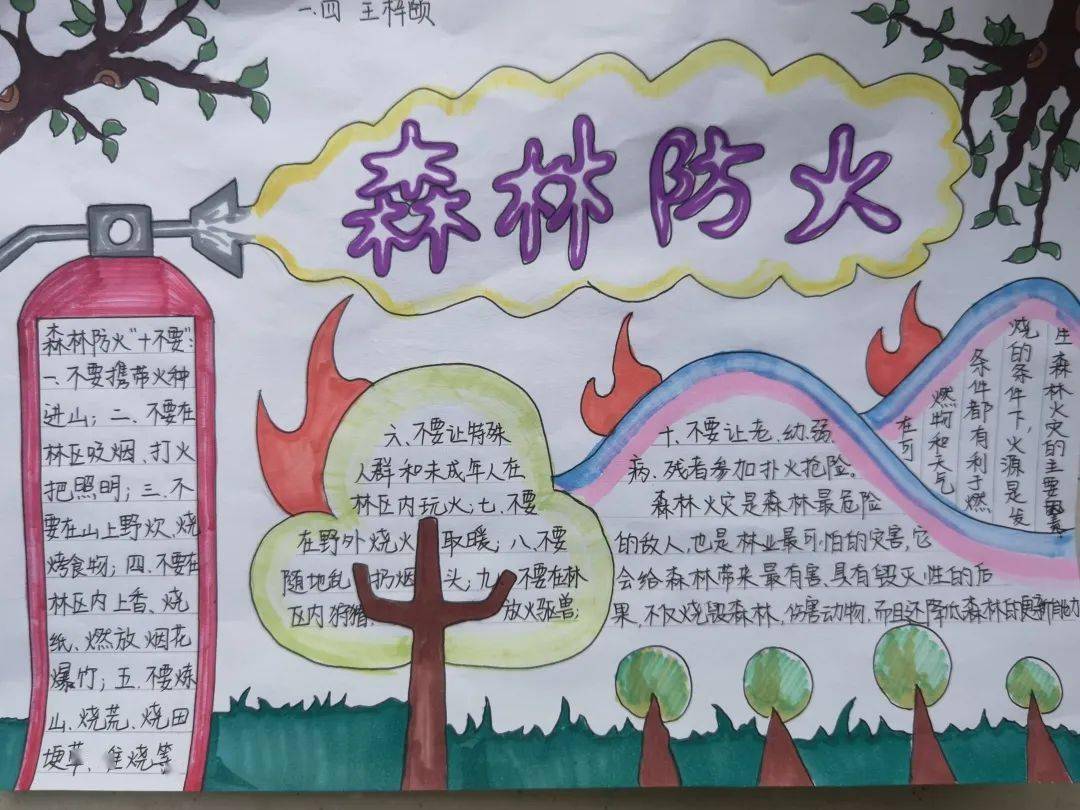 一.四 王梓颐
森林防火
森林防火"十不要":
一、不要携带火种
进山；二、不要在
林区吸烟、打火
把照明；三、不
要在山上野炊、烧
烤食物；四、不要在
林区内上香、烧
纸、燃放烟花
爆竹；五、不要炼
山、烧荒、烧田
埂草、焦烧等
六、不要让特殊
人群和未成年人在
林区内玩火；七、不要
在野外烧火取暖；八、不要
随地乱扔烟头；九、不要在林
区内狩猎、放火驱兽；
十、不要让老、幼、弱、
病、残者参加扑火抢险。
森林火灾是森林最危险
的敌人，也是林业最可怕的灾害，它
会给森林带来最有害、具有毁灭性的后
果，不仅烧毁森林，伤害动物，而且还降低森林的更新能力
在可
燃物和天气
条件都有利于燃
烧的条件下，火源是发
生森林火灾的主要因素